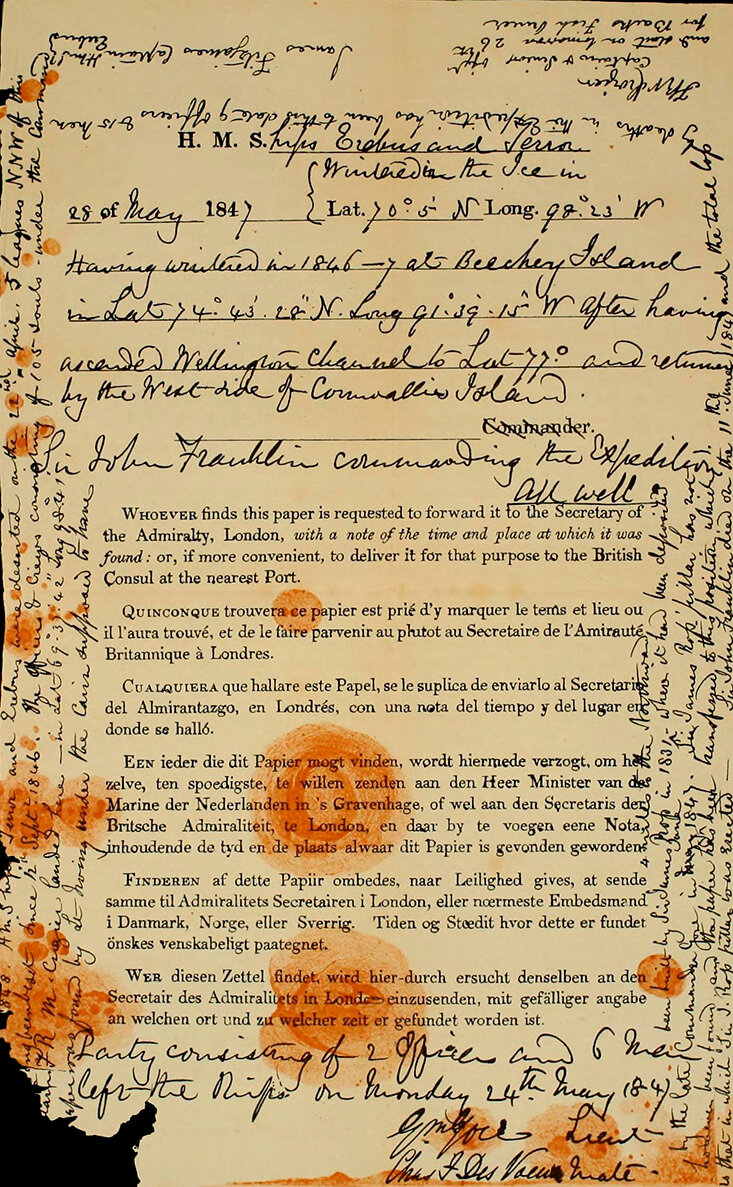 H. M. S.hips Erebus and Terror
Wintered in the Ice in
28 of May 1847 Lat. 70° 5' N Long. 98° 23' W
Having wintered in 1846–7 at Beechey Island
in Lat 74° 43' 28" N. Long 91° 39' 15" W After having
ascended Wellington Channel to Lat 77° and returned
by the West side of Cornwallis Island.
Commander.
Sir John Franklin commanding the Expedition
All well
WHOEVER finds this paper is requested to forward it to the Secretary of
the Admiralty, London, with a note of the time and place at which it was
found: or, if more convenient, to deliver it for that purpose to the British
Consul at the nearest Port.
QUINCONQUE trouvera ce papier est prié d'y marquer le tems et lieu ou
il l'aura trouvé, et de le faire parvenir au plutot au Secretaire de l'Amirauté
Britannique à Londres.
CUALQUIERA que hallare este Papel, se le suplica de enviarlo al Secretario
del Almirantazgo, en Londrés, con una nota del tiempo y del lugar en
donde se halló.
EEN ieder die dit Papier mogt vinden, wordt hiermede verzogt, om het
zelve, ten spoedigste, te willen zenden aan den Heer Minister van de
Marine der Nederlanden in 's Gravenhage, of wel aan den Secretaris der
Britsche Admiraliteit, te London, en daar by te voegen eene Nota,
inhoudende de tyd en de plaats alwaar dit Papier is gevonden geworden
FINDEREN af dette Papiir ombedes, naar Leilighed gives, at sende
samme til Admiralitets Secretairen i London, eller nœrmeste Embedsmand
i Danmark, Norge, eller Sverrig. Tiden og Stœdit hvor dette er fundet
önskes venskabeligt paategnet.
WER diesen Zettel findet, wird hier-durch ersucht denselben an den
Secretair des Admiralitets in London einzusenden, mit gefälliger angabe
an welchen ort und zu welcher zeit er gefundet worden ist.
Party consisting of 2 Officers and 6 Men
left the Ships on Monday 24th May 1847
Gm Gore Lieut
Chas F Des Voeux Mate
1848 H M Ships Terror and Erebus were deserted on the 22nd April, 5 leagues NNW of this
since 12th Septr 1846. The Officers & Crews consisting of 105 souls under the command
F R M Crozier landed here—in Lat 69° 37' 42" Long 98° 41'
paper was found by Lt Irving under the Cairn supposed to have
been built by Sir James Ross in 1831 where it had been deposited 4 miles to the Northward
by the late Commander Gore in June 1847. Sir James Ross' pillar has not
however been found and the paper has been transferred to this position which
is that in which Sir J. Ross pillar was erected — Sir John Franklin died on the 11th June 1847 and the total loss
by deaths in the Expedition has been to this date 9 Officers & 15 Men
James Fitzjames Captain HMS Erebus
F R M Crozier
Captain & Senior Offr
and start on tomorrow 26th
for Backs Fish River